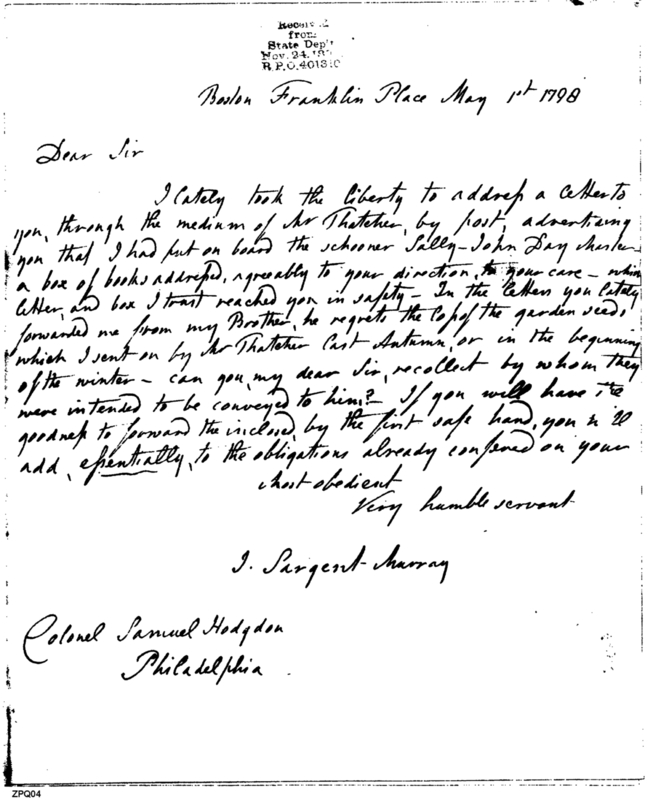 Received
from
State Dep't
Nov. 24. 18
R.P.O. 401310
Boston Franklin Place May 1st 1798
Dear Sir
I lately took the liberty to address a letter to
you, through the medium of Mr Thatcher, by post, advertising
you that I had put on board the schooner Sally - John Day Master
a box of books addressed, agreeably to your direction, to your care - which
letter, and box I trust reached you in safety - In the letters you lately
forwarded me from my Brother, he regrets the loss of the garden seeds
which I sent on by Mr Thatcher last Autumn, or in the beginning
of the winter - can you, my dear Sir, recollect by whom they
were intended to be conveyed to him? If you will have the
goodness to forward the inclosed, by the first safe hand, you will
add, essentially, to the obligations already confered on your
most obedient
Very humble servant
J. Sargent Murray
Colonel Samuel Hodgdon
Philadelphia.
ZPQ04